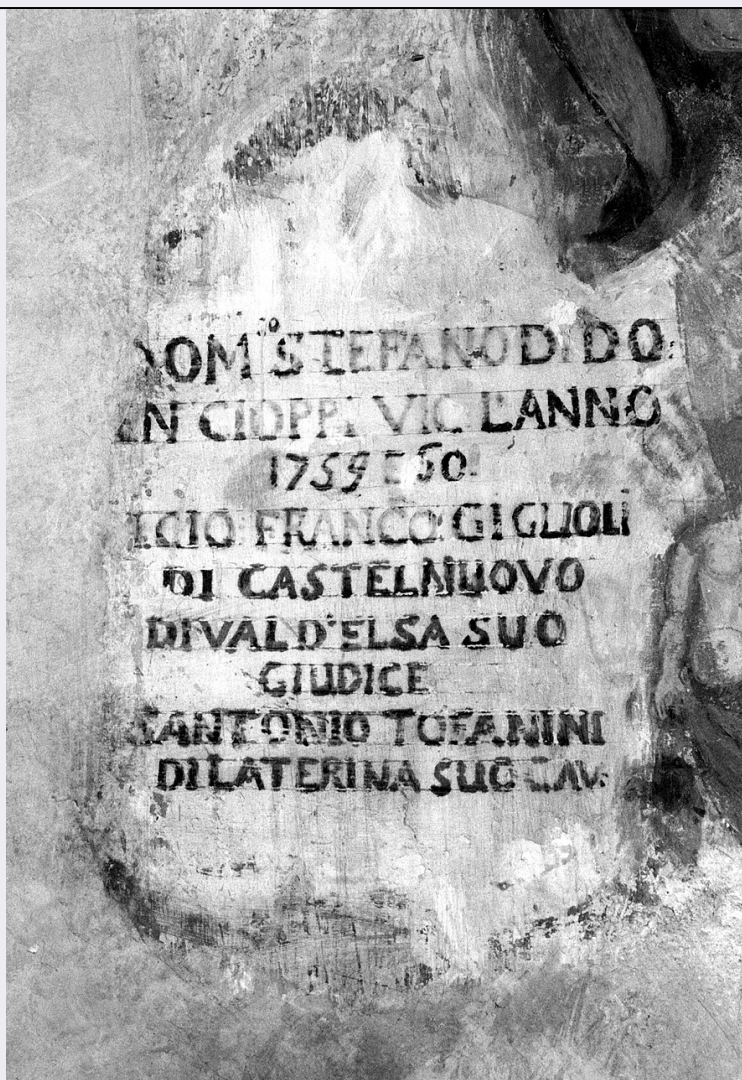 DOM.co STEFANO DI DO.
EN CIOPPI VIC L'ANNO
1759 E 60
ECIO FRANCO GIGLIOLI
DI CASTELNUOVO
DI VAL D'ELSA SUO
GIUDICE
E ANTONIO TOFANINI
DI LATERINA SUO CAV.